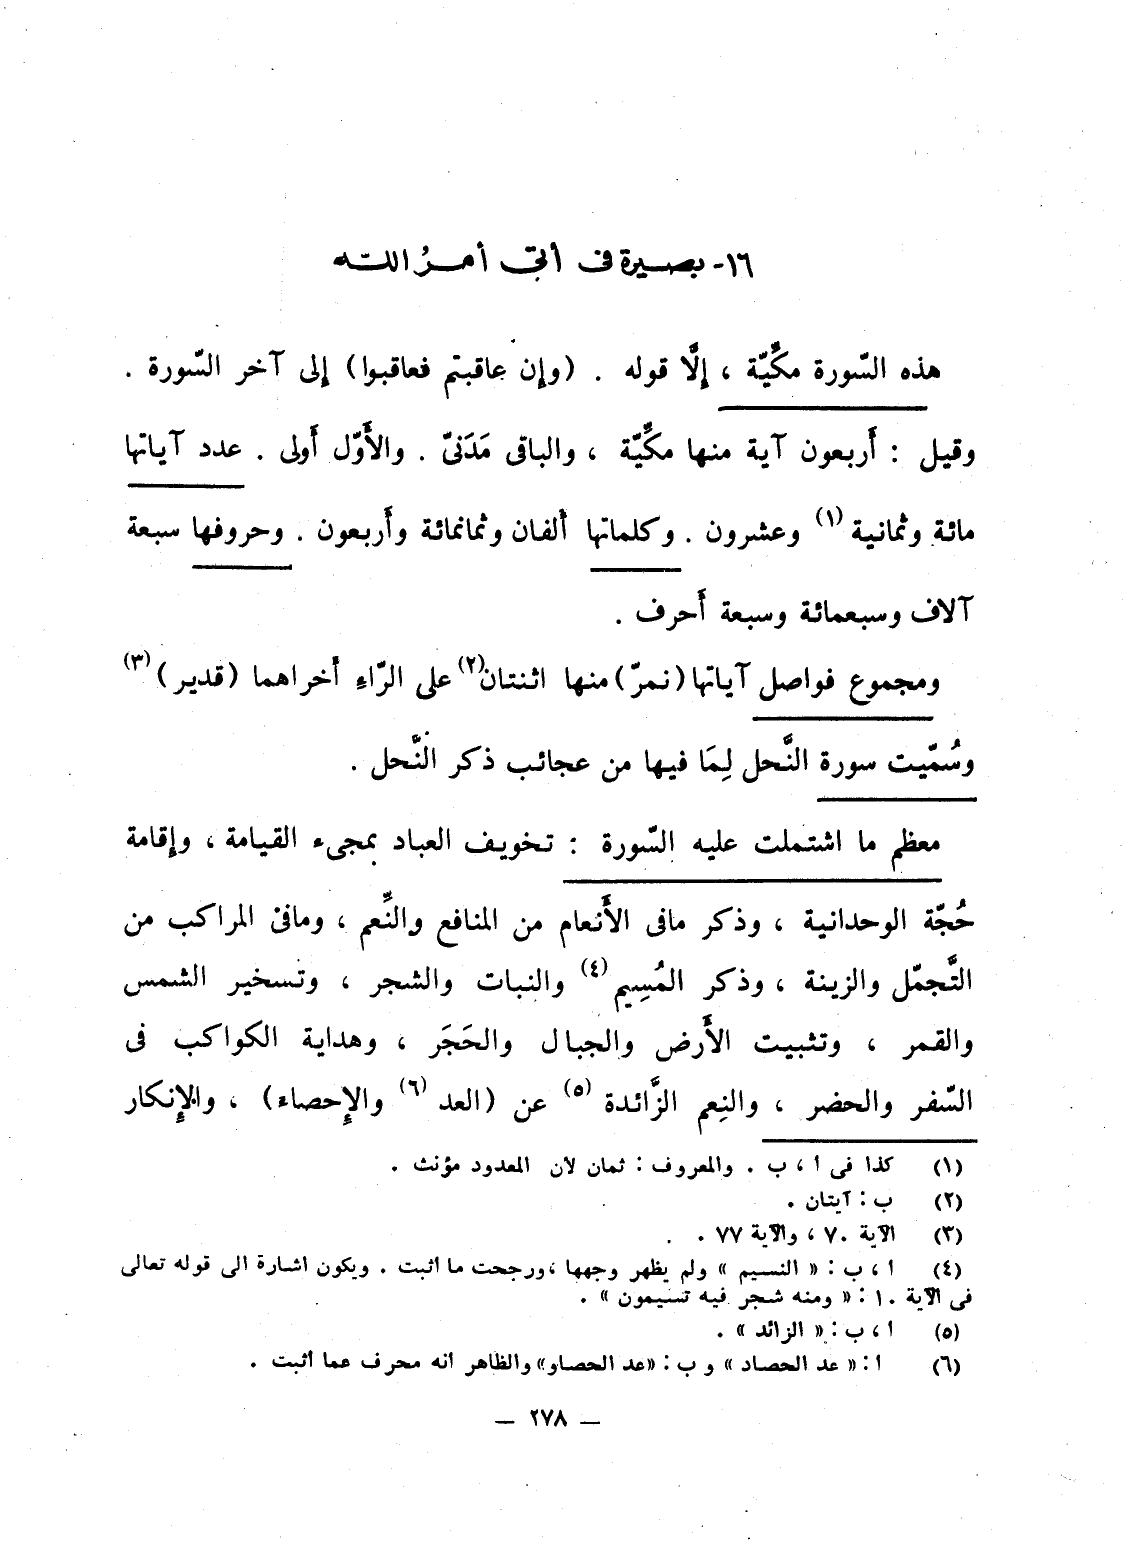 ١٦- بصيرة فى أتى أمرُ الله
هذه السّورة مكِّيّة ، إلَّا قوله . (وإن عاقبتم فعاقبوا) إلى آخر السّورة .
وقيل : أَربعون آية منها مكِّيّة ، والباقى مَدَنىّ . والأَوّل أَولى . عدد آياتها
مائة وثمانية (١) وعشرون . وكلماتها أَلفان وثمانمائة وأَربعون . وحروفها سبعة
آلاف وسبعمائة وسبعة أَحرف .
ومجموع فواصل آياتها (نمرّ) منها اثنتان (٢) على الرّاءِ أخراهما (قدير) (٣)
وسُمّيت سورة النَّحل لِمَا فيها من عجائب ذكر النَّحل .
معظم ما اشتملت عليه السّورة : تخويف العباد بمجىء القيامة ، وإقامة
حُجّة الوحدانية ، وذكر مافى الأَنعام من المنافع والنِّعم ، ومافى المراكب من
التَّجمّل والزينة ، وذكر المُسِيم (٤) والنبات والشجر ، وتسخير الشمس
والقمر ، وتثبيت الأَرض والجبال والحَجَر ، وهداية الكواكب فى
السّفر والحضر ، والنِعم الزَّائدة (٥) عن (العد (٦) والإِحصاء) ، والإِنكار
(١) كذا فى أ ، ب . والمعروف : ثمان لأن المعدود مؤنث .
(٢) ب : آيتان .
(٣) الآية ٧٠ ، والآية ٧٧ .
(٤) أ ، ب : « النسيم » ولم يظهر وجهها ، ورجحت ما أثبت . ويكون اشارة الى قوله تعالى
فى الآية ١٠ : « ومنه شجر فيه تسيمون » .
(٥) أ ، ب : « الزائد » .
(٦) أ : « عد الحصاد » و ب : «عد الحصاو» والظاهر أنه محرف عما أثبت .
— ٢٧٨ —